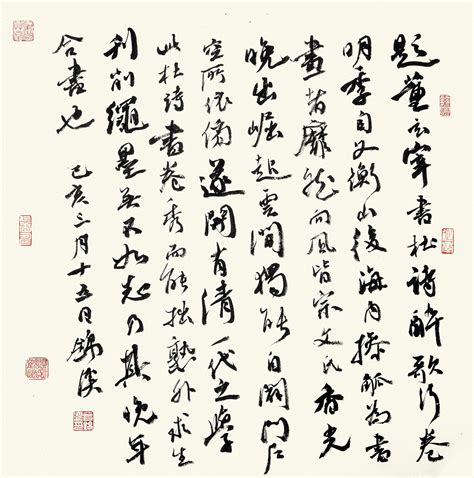 題董玄宰書杜詩醉歌行卷
明季自文衡山後海內操觚為書
畫者靡然向風皆宗文氏香光
晚出崛起雲間獨能自闢門户
空所依傍遂開有清一代之學
此杜詩書卷秀而能拙熟外求生
刊削繩墨無不如志乃其晚年
合書也 己亥三月十五日錦溪